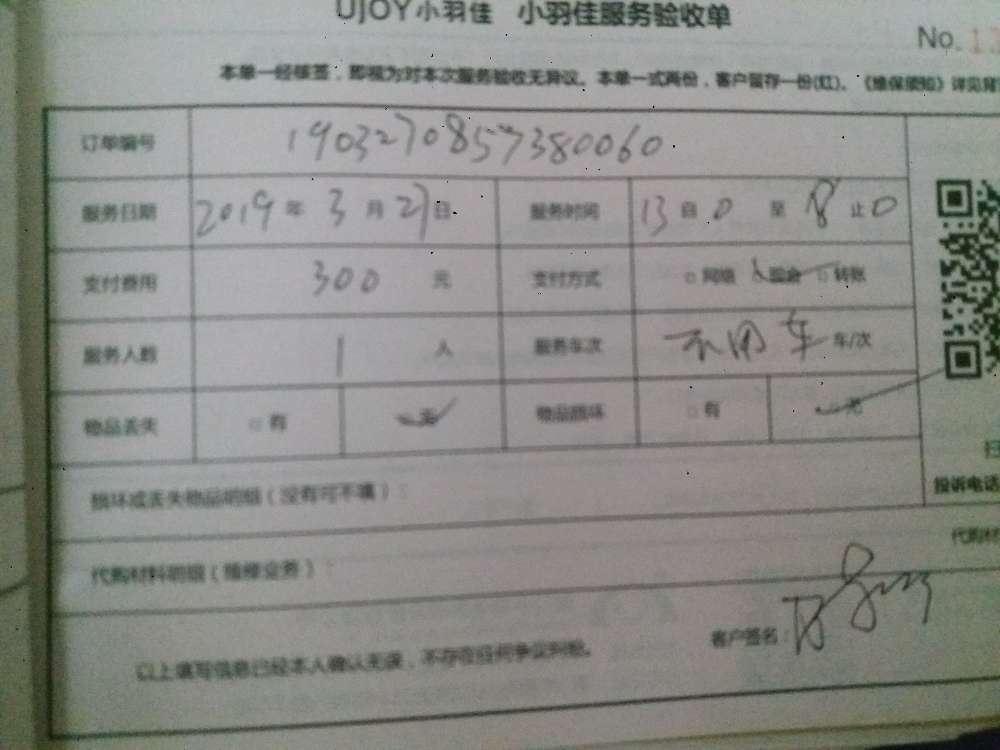 UJOY小羽佳 小羽佳服务验收单
No.
本单一经核签，即视为对本次服务验收无异议。本单一式两份，客户留存一份(红)。《维保须知》详见背
订单编号 1903270857380060
服务日期 2019 年 3 月 27 日 服务时间 13 自 0 至 18 止 0
支付费用 300 元 支付方式 □ 网络 现金 □ 转账
服务人数 1 人 服务车次 不用车 车/次
物品丢失 □ 有 无 物品损坏 □ 有 无
扫
投诉电话
损坏或丢失物品明细（没有可不填）：
代购材
代购材料明细（维修业务）：
客户签名：
以上填写信息已经本人确认无误，不存在任何争议纠纷。